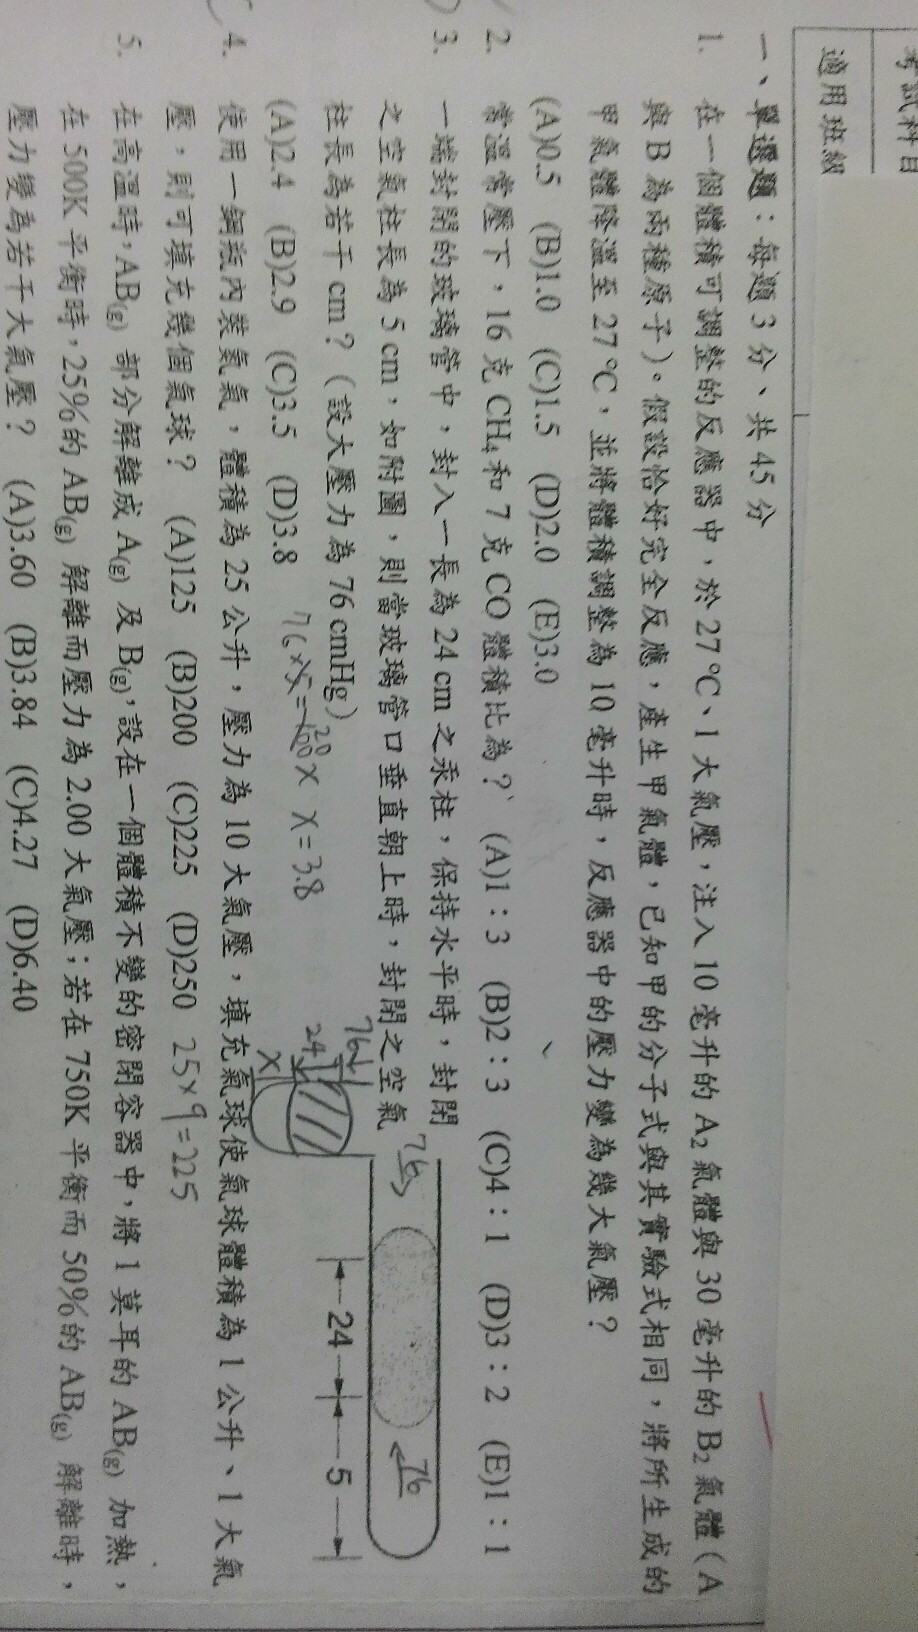 考試科目
適用班級
一、單選題：每題 3 分、共 45 分
1. 在一個體積可調整的反應器中，於 27 ℃、1 大氣壓，注入 10 毫升的 A₂ 氣體與 30 毫升的 B₂ 氣體（A
與 B 為兩種原子）。假設恰好完全反應，產生甲氣體，已知甲的分子式與其實驗式相同，將所生成的
甲氣體降溫至 27 ℃，並將體積調整為 10 毫升時，反應器中的壓力變為幾大氣壓？
(A)0.5 (B)1.0 (C)1.5 (D)2.0 (E)3.0
2. 常溫常壓下，16 克 CH₄ 和 7 克 CO 體積比為？ (A)1：3 (B)2：3 (C)4：1 (D)3：2 (E)1：1
3. 一端封閉的玻璃管中，封入一長為 24 cm 之汞柱，保持水平時，封閉
之空氣柱長為 5 cm，如附圖，則當玻璃管口垂直朝上時，封閉之空氣
柱長為若干 cm？（設大氣壓力為 76 cmHg）
(A)2.4 (B)2.9 (C)3.5 (D)3.8
76×5=100x x=3.8
20
76
24
x
76
76
24 5
4. 使用一鋼瓶內裝氦氣，體積為 25 公升，壓力為 10 大氣壓，填充氣球使氣球體積為 1 公升、1 大氣
壓，則可填充幾個氣球？ (A)125 (B)200 (C)225 (D)250 25×9=225
5. 在高溫時，AB(g) 部分解離成 A(g) 及 B(g)，設在一個體積不變的密閉容器中，將 1 莫耳的 AB(g) 加熱，
在 500K 平衡時，25%的 AB(g) 解離而壓力為 2.00 大氣壓；若在 750K 平衡而 50%的 AB(g) 解離時，
壓力變為若干大氣壓？ (A)3.60 (B)3.84 (C)4.27 (D)6.40